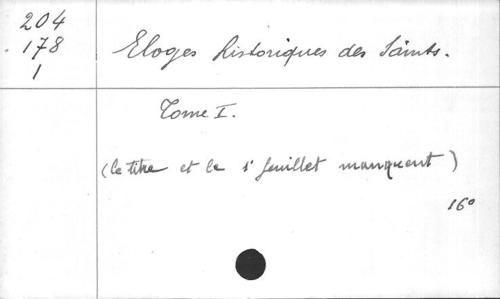 204
178
1
Eloges historiques des Saints.
Tome I.
(le titre et le 1r feuillet manquent)
16°